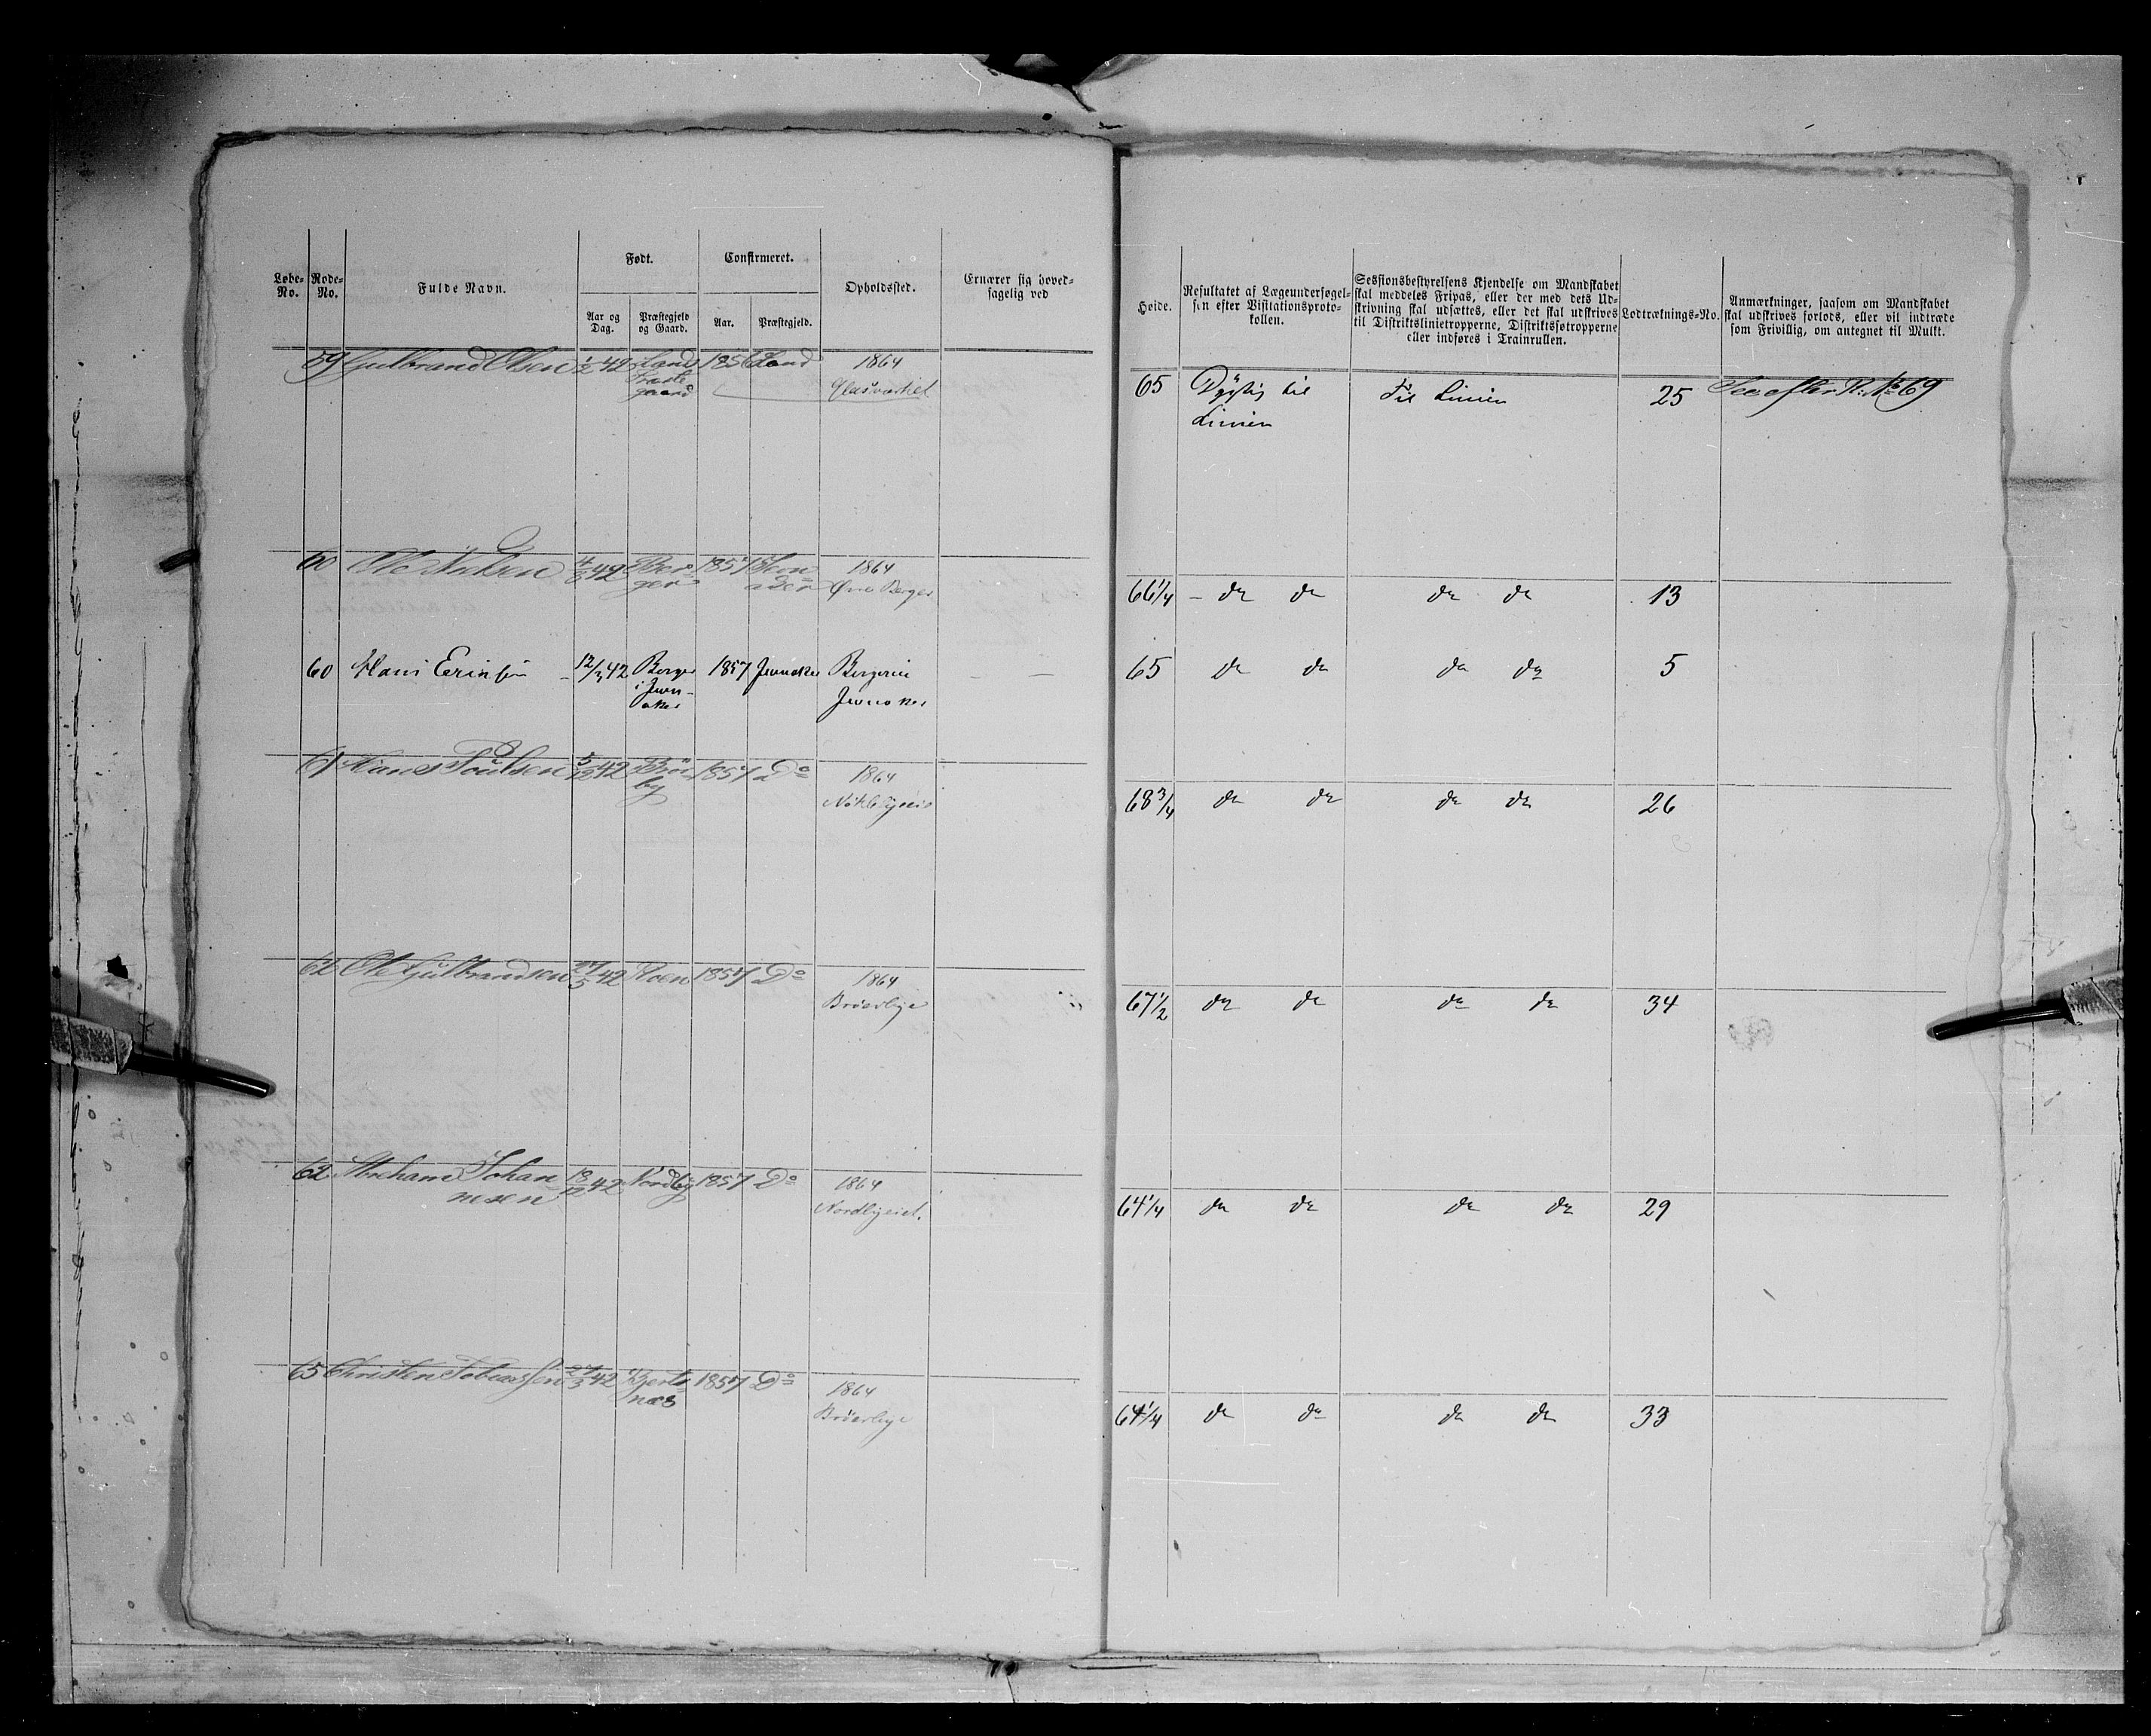 Løbe-No. Rode-No. Fulde Navn. Født. Confirmeret. Opholdssted. Ernærer sig hovedsagelig ved
Aar og Dag. Præstegjeld og Gaard. Aar. Præstegjeld.
Høide. Resultatet af Lægeundersøgelsen efter Visitationsprotokollen. Sessionsbestyrelsens Kjendelse om Mandskabet skal meddeles Fripas, eller der med dets Udskrivning skal udsættes, eller det skal udskrives til Distriktslinietropperne, Distriktssøtropperne eller indføres i Trainrullen. Lodtræknings-No. Anmærkninger, saasom om Mandskabet skal udskrives forlods, eller vil indtræde som Frivillig, om antegnet til Mulkt.
59 Gulbrand Olsen 1/2 42 Land 1856 Land 1864
gaard Glasværket
65 Dygtig til Linien Til Linien 25 See efter R: No 69
60 Ole 42 Berger 1857 1864
Øvre Berger
66 1/4 – do do do do 13
60 Hans Eriksen 12/3 42 Berger i Jevnaker 1857 Jevnaker Bergerie Jevnaker – –
65 do do do do 5
61 Hans Poulsen 5/12 42 1857 Do 1864
68 3/4 do do do do 26
62 Ole Gulbrandsen 27/5 42 Roen 1857 Do 1864
Brøerbye
67 1/2 do do do do 34
62 Abraham Johannesen 18/12 42 Nordby 1857 Do 1864
Nordbyeiet.
64 1/4 do do do do 29
65 Christen Tobiassen 27/3 42 Bjertnæs 1857 Do 1864
Brøerbye
64 1/4 do do do do 33